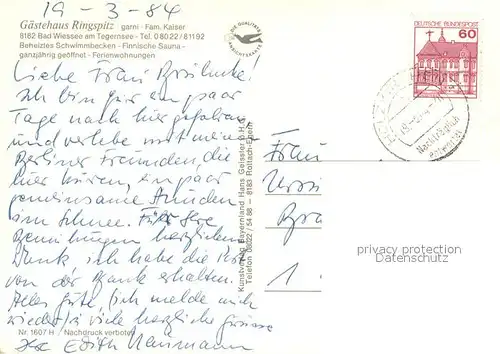 19-3-84
Gästehaus Ringspitz garni · Fam. Kaiser
8182 Bad Wiessee am Tegernsee - Tel. 0 80 22 / 811 92
Beheiztes Schwimmbecken - Finnische Sauna -
ganzjährig geöffnet - Ferienwohnungen
DIE QUALITÄTS
ANSICHTSKARTE
DEUTSCHE BUNDESPOST
60
Liebe Frau
Ich bin für ein paar
Tage nach hier gefahren
und verlebe mit meinen
Berliner Freunden, die
hier kuren, ein paar
gemeinsame Stunden
im Schnee. Für Ihre
Bemühungen herzlichen
Dank, ich habe die
von der Bank erhalten.
Alles gute (ich melde mich
wieder) viele herzliche Grüsse
Ihre Edith
Nr. 1607 H / Nachdruck verboten
Kunstverlag Bayernland Hans Geissler G.m.b.H.
Telefon 08022 / 54 88 - 8183 Rottach-Egern
Frau
1
privacy protection
Datenschutz